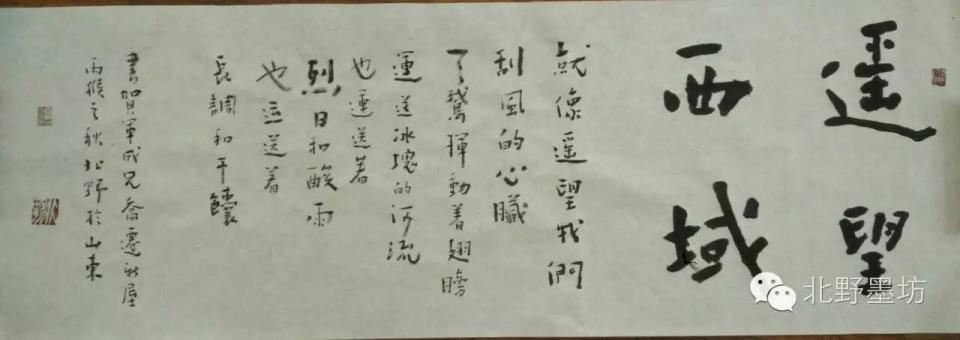 遥望
西域
就像遥望我們
刮風的心臟
天鵝揮動着翅膀
運送冰塊的河流
也運送着
烈日和酸雨
也运送着
長調和干饢
書賀軍成兄喬遷新屋
丙猴之秋北野於山東
北野墨坊